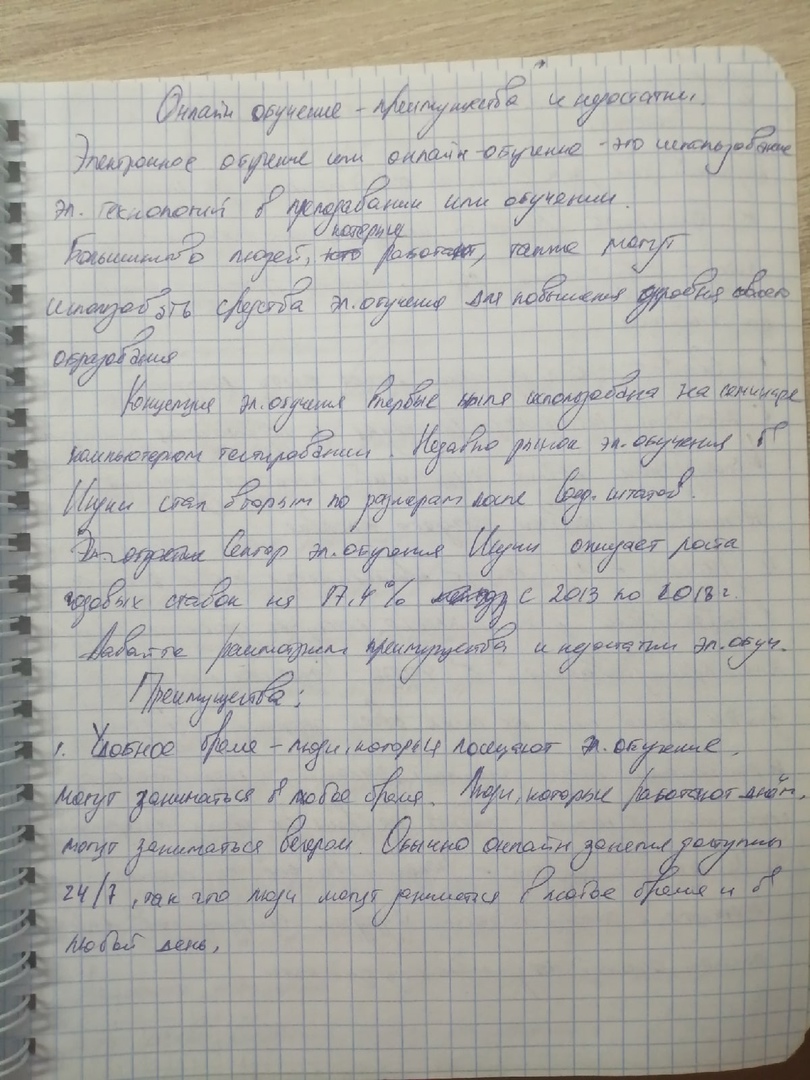 Онлайн обучение - преимущества и недостатки.
Электронное обучение или онлайн-обучение - это использование
эл. технологий в преподавании или обучении.
которые
Большинство людей, кто работают, также могут
использовать средства эл. обучения для повышения уровня своего
образования
Концепция эл. обучения впервые была использована на семинаре
компьютером тестировании. Недавно рынок эл. обучения в
Индии стал вторым по размерам после Соед. штатов.
Сектор эл. обучения Индии ожидает роста
годовых ставок на 17,4% с 2013 по 2018 г.
Давайте рассмотрим преимущества и недостатки эл. обуч.
Преимущества:
1. Удобное время - люди, которые посещают эл. обучение,
могут заниматься в любое время. Люди, которые работают днём,
могут заниматься вечером. Обычно онлайн занятия доступны
24/7, так что люди могут заниматься в любое время и в
любой день,